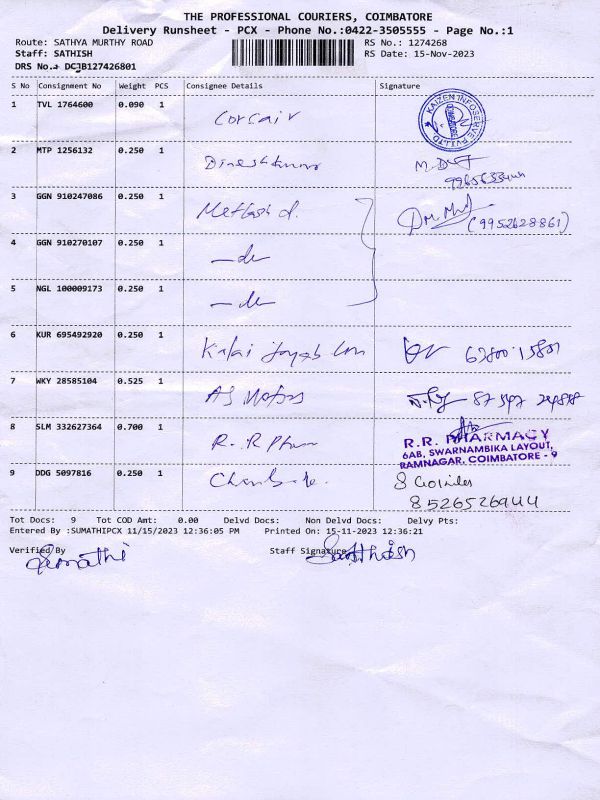 THE PROFESSIONAL COURIERS, COIMBATORE
Delivery Runsheet - PCX - Phone No.:0422-3505555 - Page No.:1
Route: SATHYA MURTHY ROAD RS No.: 1274268
Staff: SATHISH RS Date: 15-Nov-2023
DRS No.: DCJB127426801
S No Consignment No Weight PCS Consignee Details Signature
1 TVL 1764600 0.090 1 Corsair KAIZEN INFOSERVE PVT.LTD COIMBATORE
2 MTP 1256132 0.250 1 Dineshkumar
3 GGN 910247086 0.250 1 (9952628861)
4 GGN 910270107 0.250 1 -do
5 NGL 100009173 0.250 1 -do
6 KUR 695492920 0.250 1
7 WKY 28585104 0.525 1 AS Motors
8 SLM 332627364 0.700 1 R.R Pham R.R. PHARMACY
6AB, SWARNAMBIKA LAYOUT,
RAMNAGAR, COIMBATORE - 9
9 DDG 5097816 0.250 1
8526526944
Tot Docs: 9 Tot COD Amt: 0.00 Delvd Docs: Non Delvd Docs: Delvy Pts:
Entered By :SUMATHIPCX 11/15/2023 12:36:05 PM Printed On: 15-11-2023 12:36:21
Verified By Staff Signature
Sumathi Sathish